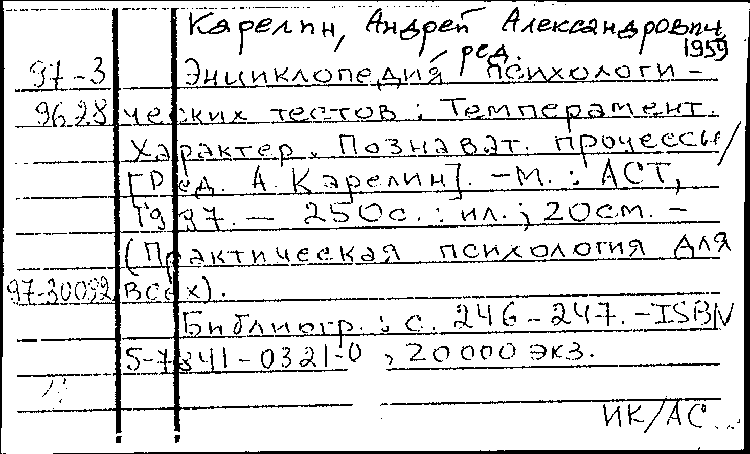 Карелин, Андрей Александрович,
1959
ред.
97-3 Энциклопедия психологи-
9628 ческих тестов: Темперамент.
Характер. Познават. процессы/
[Ред. А. Карелин]. -М.: АСТ,
1997. - 250с.: ил.; 20см. -
(Практическая психология для
97-30092 всех).
Библиогр.: с. 246-247. - ISBN
5-7841-0321-0, 20000 экз.
ИК/АС